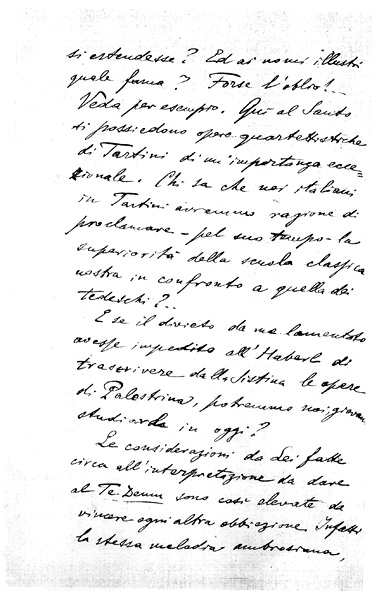 si estendesse? Ed ai nomi illustri
quale fama? Forse l'oblio!..
Veda per esempio. Qui al Santo
si possiedono opere quartettistiche
di Tartini di un'importanza ecce=
zionale. Chi sa che noi italiani
in Tartini avremmo ragione di
proclamare - pel suo tempo - la
superiorità della scuola classica
nostra in confronto a quella dei
tedeschi?..
E se il divieto da me lamentato
avesse impedito all'Haberl di
trascrivere dalla Sistina le opere
di Palestrina, potremmo noi giovani
studiarla in oggi?
Le considerazioni da Lei fatte
circa all'interpretazione da dare
al Te Deum sono così elevate da
vincere ogni altra obbiezione. Infatti
la stessa melodia ambrosiana,